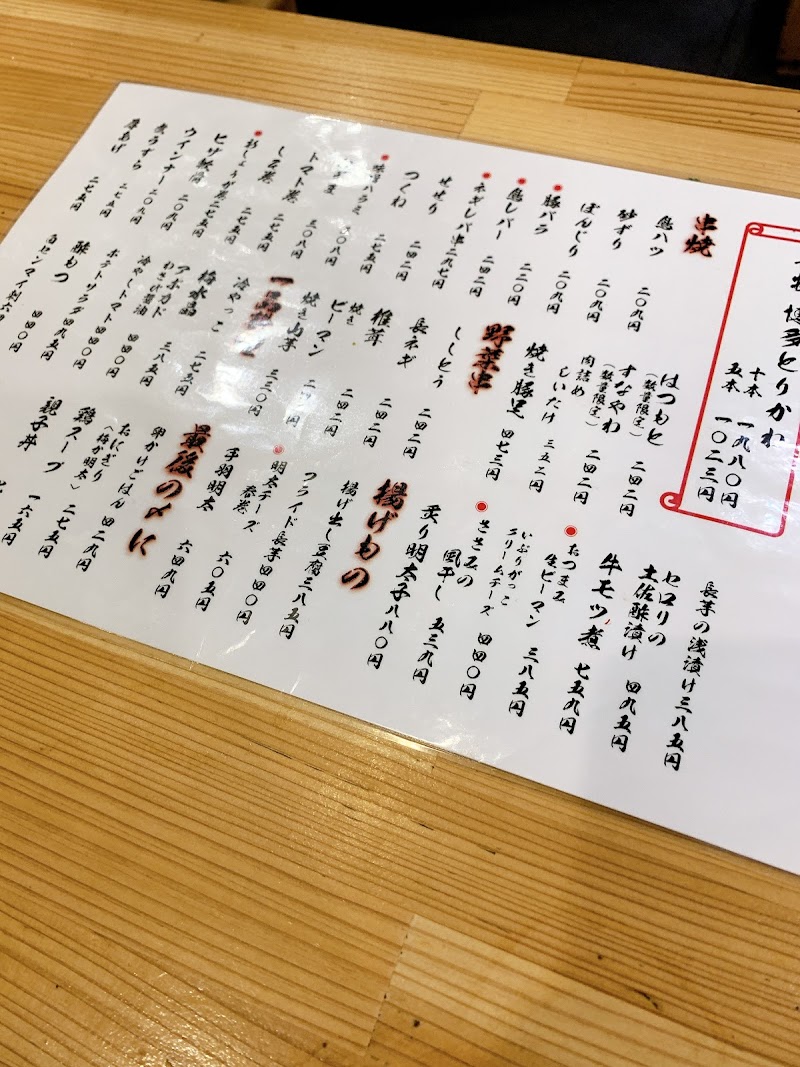 博多とりかわ
十本 一九八〇円
五本 一〇二三円
串焼
鳥ハツ 二〇九円
砂ずり 二〇九円
ぼんじり 二〇九円
豚バラ
鳥レバー 二二〇円
ネギレバ串 二九七円
せせり 二四二円
つくね 二四二円
味噌ハラミ 二七五円
三〇八円
トマト巻 三〇八円
しそ巻 二七五円
紅しょうが巻 二七五円
ヒザ軟骨 二七五円
ウインナー 二〇九円
炙うずら 二〇九円
厚あげ 二七五円
はつもと
(数量限定) 二四二円
すなやわ
(数量限定) 二四二円
肉詰め
しいたけ 三五二円
焼き豚足 四七三円
野菜串
ししとう 二四二円
長ネギ 二四二円
椎茸 二四二円
焼き
ピーマン 二四二円
焼き山芋
冷やっこ 三三〇円
梅水晶 二七五円
アボカド
わさび醤油 三八五円
冷やしトマト 四四〇円
ポテトサラダ 四九五円
酢もつ 四四〇円
白センマイ刺
長芋の浅漬け 三八五円
セロリの
土佐酢漬け 四九五円
牛モツ煮 七五九円
おつまみ
生ピーマン 三八五円
いぶりがっこ
クリームチーズ 四四〇円
ささみの
風干し 五三九円
炙り明太子 八八〇円
揚げもの
揚げ出し豆腐 三八五円
フライド長芋 四四〇円
明太チーズ
春巻 六〇五円
手羽明太 六四九円
最後の〆に
卵かけごはん 四二九円
おにぎり
(梅か明太) 二七五円
鶏スープ 一六五円
親子丼